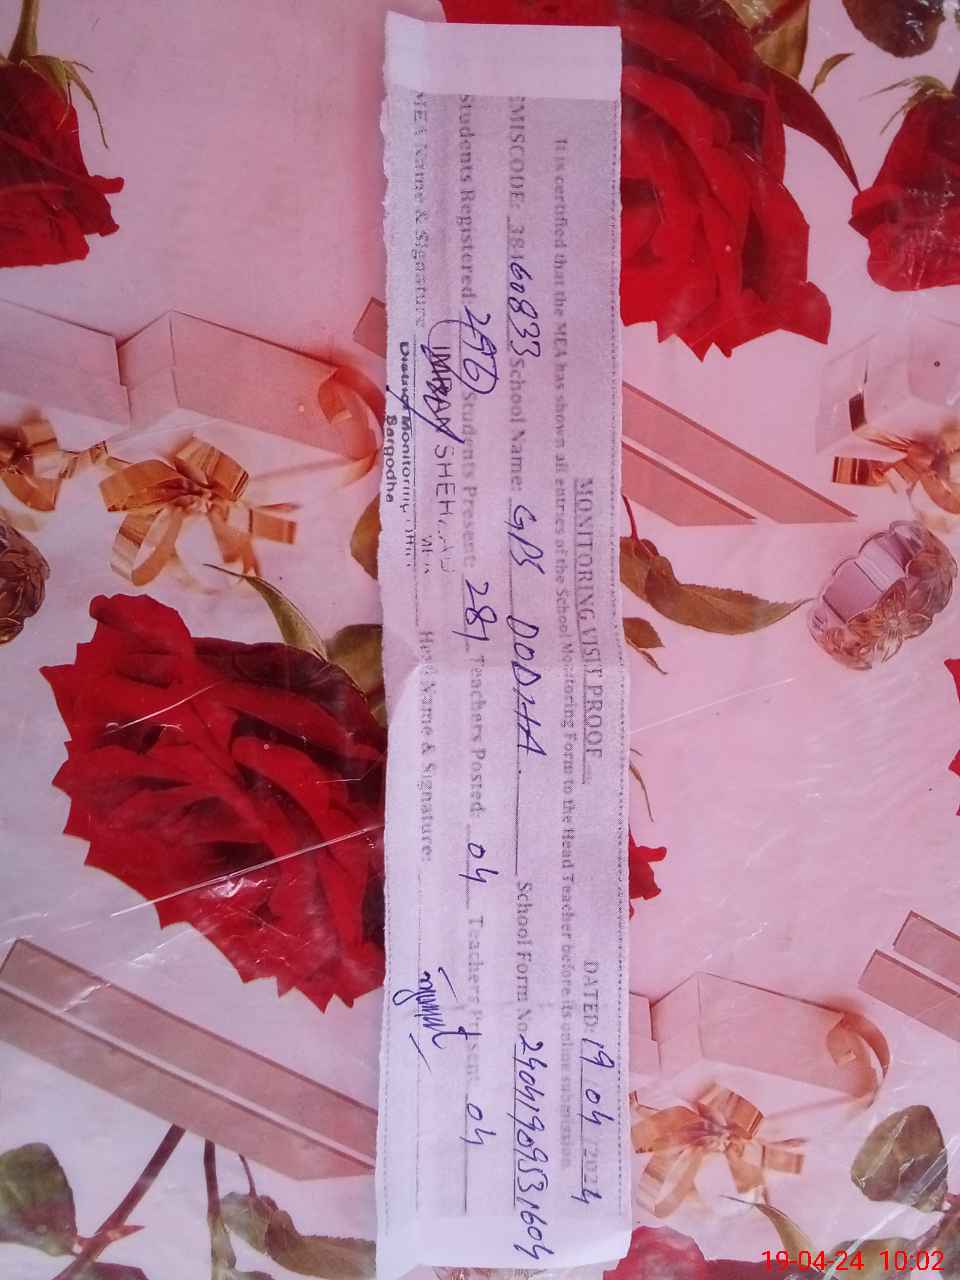 MONITORING VISIT PROOF DATED: 19/04/2024
It is certified that the MEA has shown all entries of the School Monitoring Form to the Head Teacher before its online submission.
EMISCODE: 38460833 School Name: GPS DODHA. School Form No. 24041909531604
Students Registered: 296 Students Present: 281 Teachers Posted: 04 Teachers Present 04
MEA Name & Signature Head Name & Signature:
District Monitoring
Sargodha
19-04-24 10:02